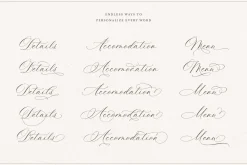 ENDLESS WAYS TO
PERSONALIZE EVERY WORD
Details Accomodation Menu
Details Accomodation Menu
Details Accomodation Menu
Details Accomodation Menu
Details Accomodation Menu